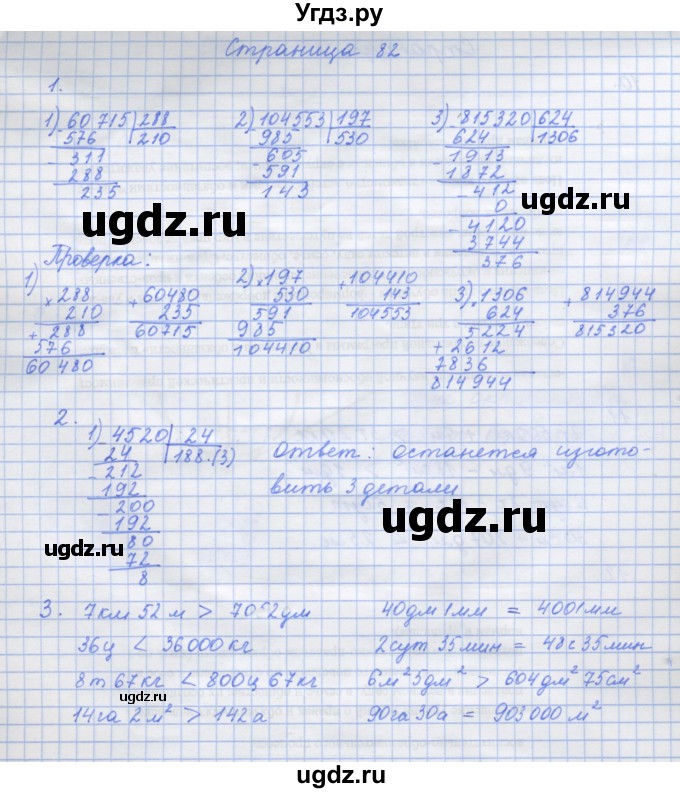 Угдз.ру
Страница 82
1.
1) 60715 | 288
576 | 210
311
288
235
2) 104553 | 197
985 | 530
605
591
143
3) 815320 | 624
624 | 1306
1913
1872
412
0
4120
3744
376
ugdz.ru
ugdz.ru
Проверка:
1)
× 288
210
+ 288
576
60480
+ 60480
235
60715
2) × 197
530
591
985
104410
+ 104410
143
104553
3) × 1306
624
5224
+ 2612
7836
814944
+ 814944
376
815320
2.
1) 4520 | 24
24 | 188.(3)
212
192
200
192
80
72
8
Ответ: останется изгото-
вить 3 детали
ugdz.ru
ugdz.ru
3. 7км 52 м > 70 2 ум
40дм 1мм = 4001мм
36ц < 36000кг
2сут 35мин = 48с 35мин
8т 67кг < 800ц 67кг
6м² 5дм² > 604дм² 75см²
14га 2м² > 142а
90га 30а = 903000 м²
ugdz.ru
ugdz.ru
ugdz.ru